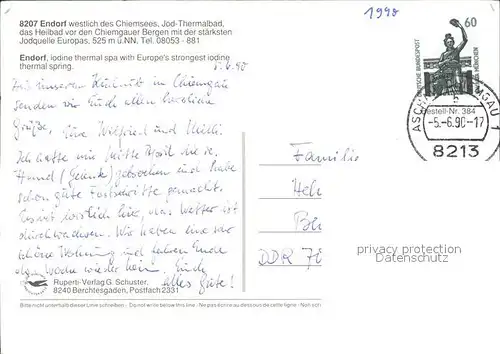 8207 Endorf westlich des Chiemsees, Jod-Thermalbad,
das Heilbad vor den Chiemgauer Bergen mit der stärksten
Jodquelle Europas, 525 m ü.NN. Tel. 08053 - 881
Endorf, iodine thermal spa with Europe's strongest iodine
thermal spring.
5.6.90
1990
60
DEUTSCHE BUNDESPOST
MÜNCHEN
ASCHAU CHIEMGAU 1
b
Bestell-Nr. 384
-5.-6.90-17
8213
unserem Urlaub im Chiemgau
senden wir Euch allen herzliche
Grüße, Eure Wilfried und
Ich hatte mir Mitte April die re.
Hand (Gelenk) gebrochen und habe
schon gute Fortschritte gemacht.
Es ist herrlich hier, das Wetter ist
durchwachsen. Wir haben eine sehr
schöne Wohnung und fahren Ende
der Woche wieder heim. Euch
alles Gute!
Familie
Heh
DDR
privacy protection
Datenschutz
Ruperti-Verlag G. Schuster,
8240 Berchtesgaden, Postfach 2331
Bitte nicht unterhalb dieser Linie schreiben Do not write below this line - Ne pas écrire au dessous de cette ligne - Non scri